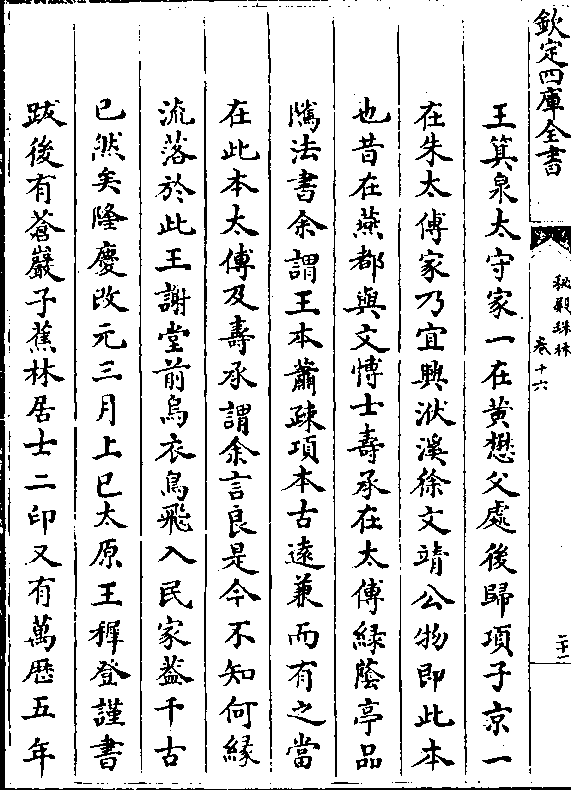 欽定四庫全書
秘殿珠林
卷十六
二十一
王箕泉太守家一在黄懋父處後歸項子京一
在朱太傅家乃宜興洑溪徐文靖公物即此本
也昔在燕都與文愽士壽承在太傅緑蔭亭品
隲法書余謂王本蕭疎項本古遠兼而有之當
在此本太傅及壽承謂余言良是今不知何縁
流落於此王謝堂前烏衣鳥飛入民家葢千古
已然矣隆慶改元三月上巳太原王穉登謹書
跋後有蒼巖子蕉林居士二印又有萬厯五年